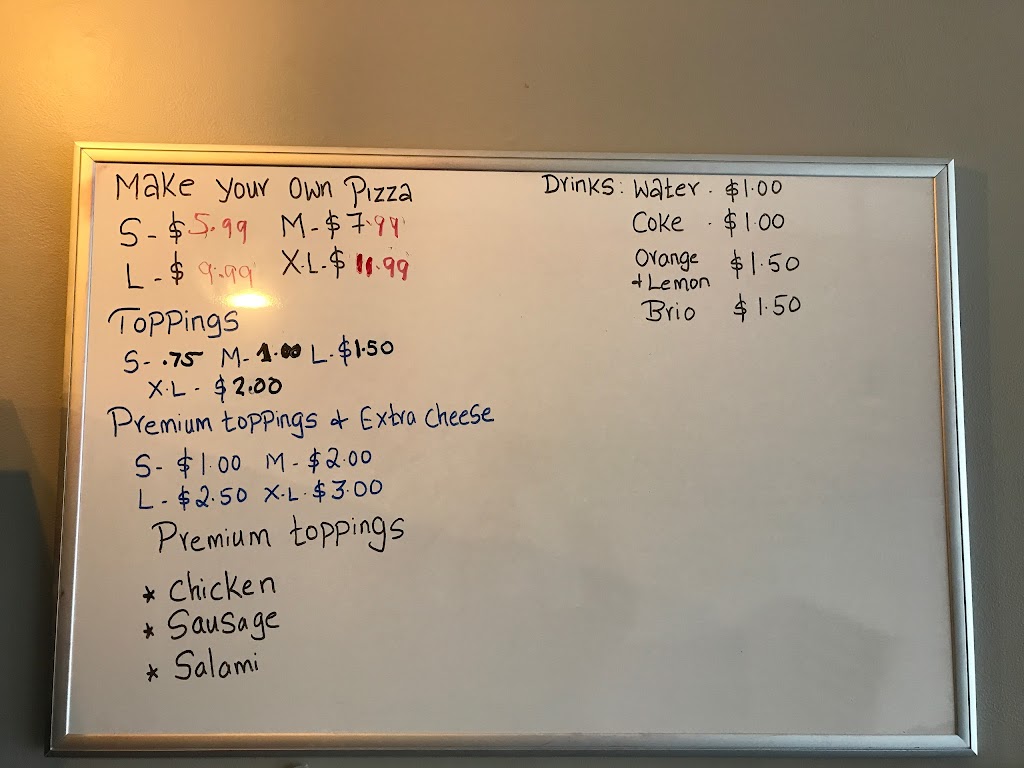 Make your own Pizza
S - $5.99 M - $7.99
L - $ 9.99 X.L. $ 11.99
Toppings
S - .75 M - 1.00 L - $1.50
X.L - $2.00
Premium toppings & Extra cheese
S - $1.00 M - $2.00
L - $2.50 X.L. $3.00
Premium toppings
* Chicken
* Sausage
* Salami
Drinks: Water . $1.00
Coke . $1.00
Orange $1.50
& Lemon
Brio $1.50